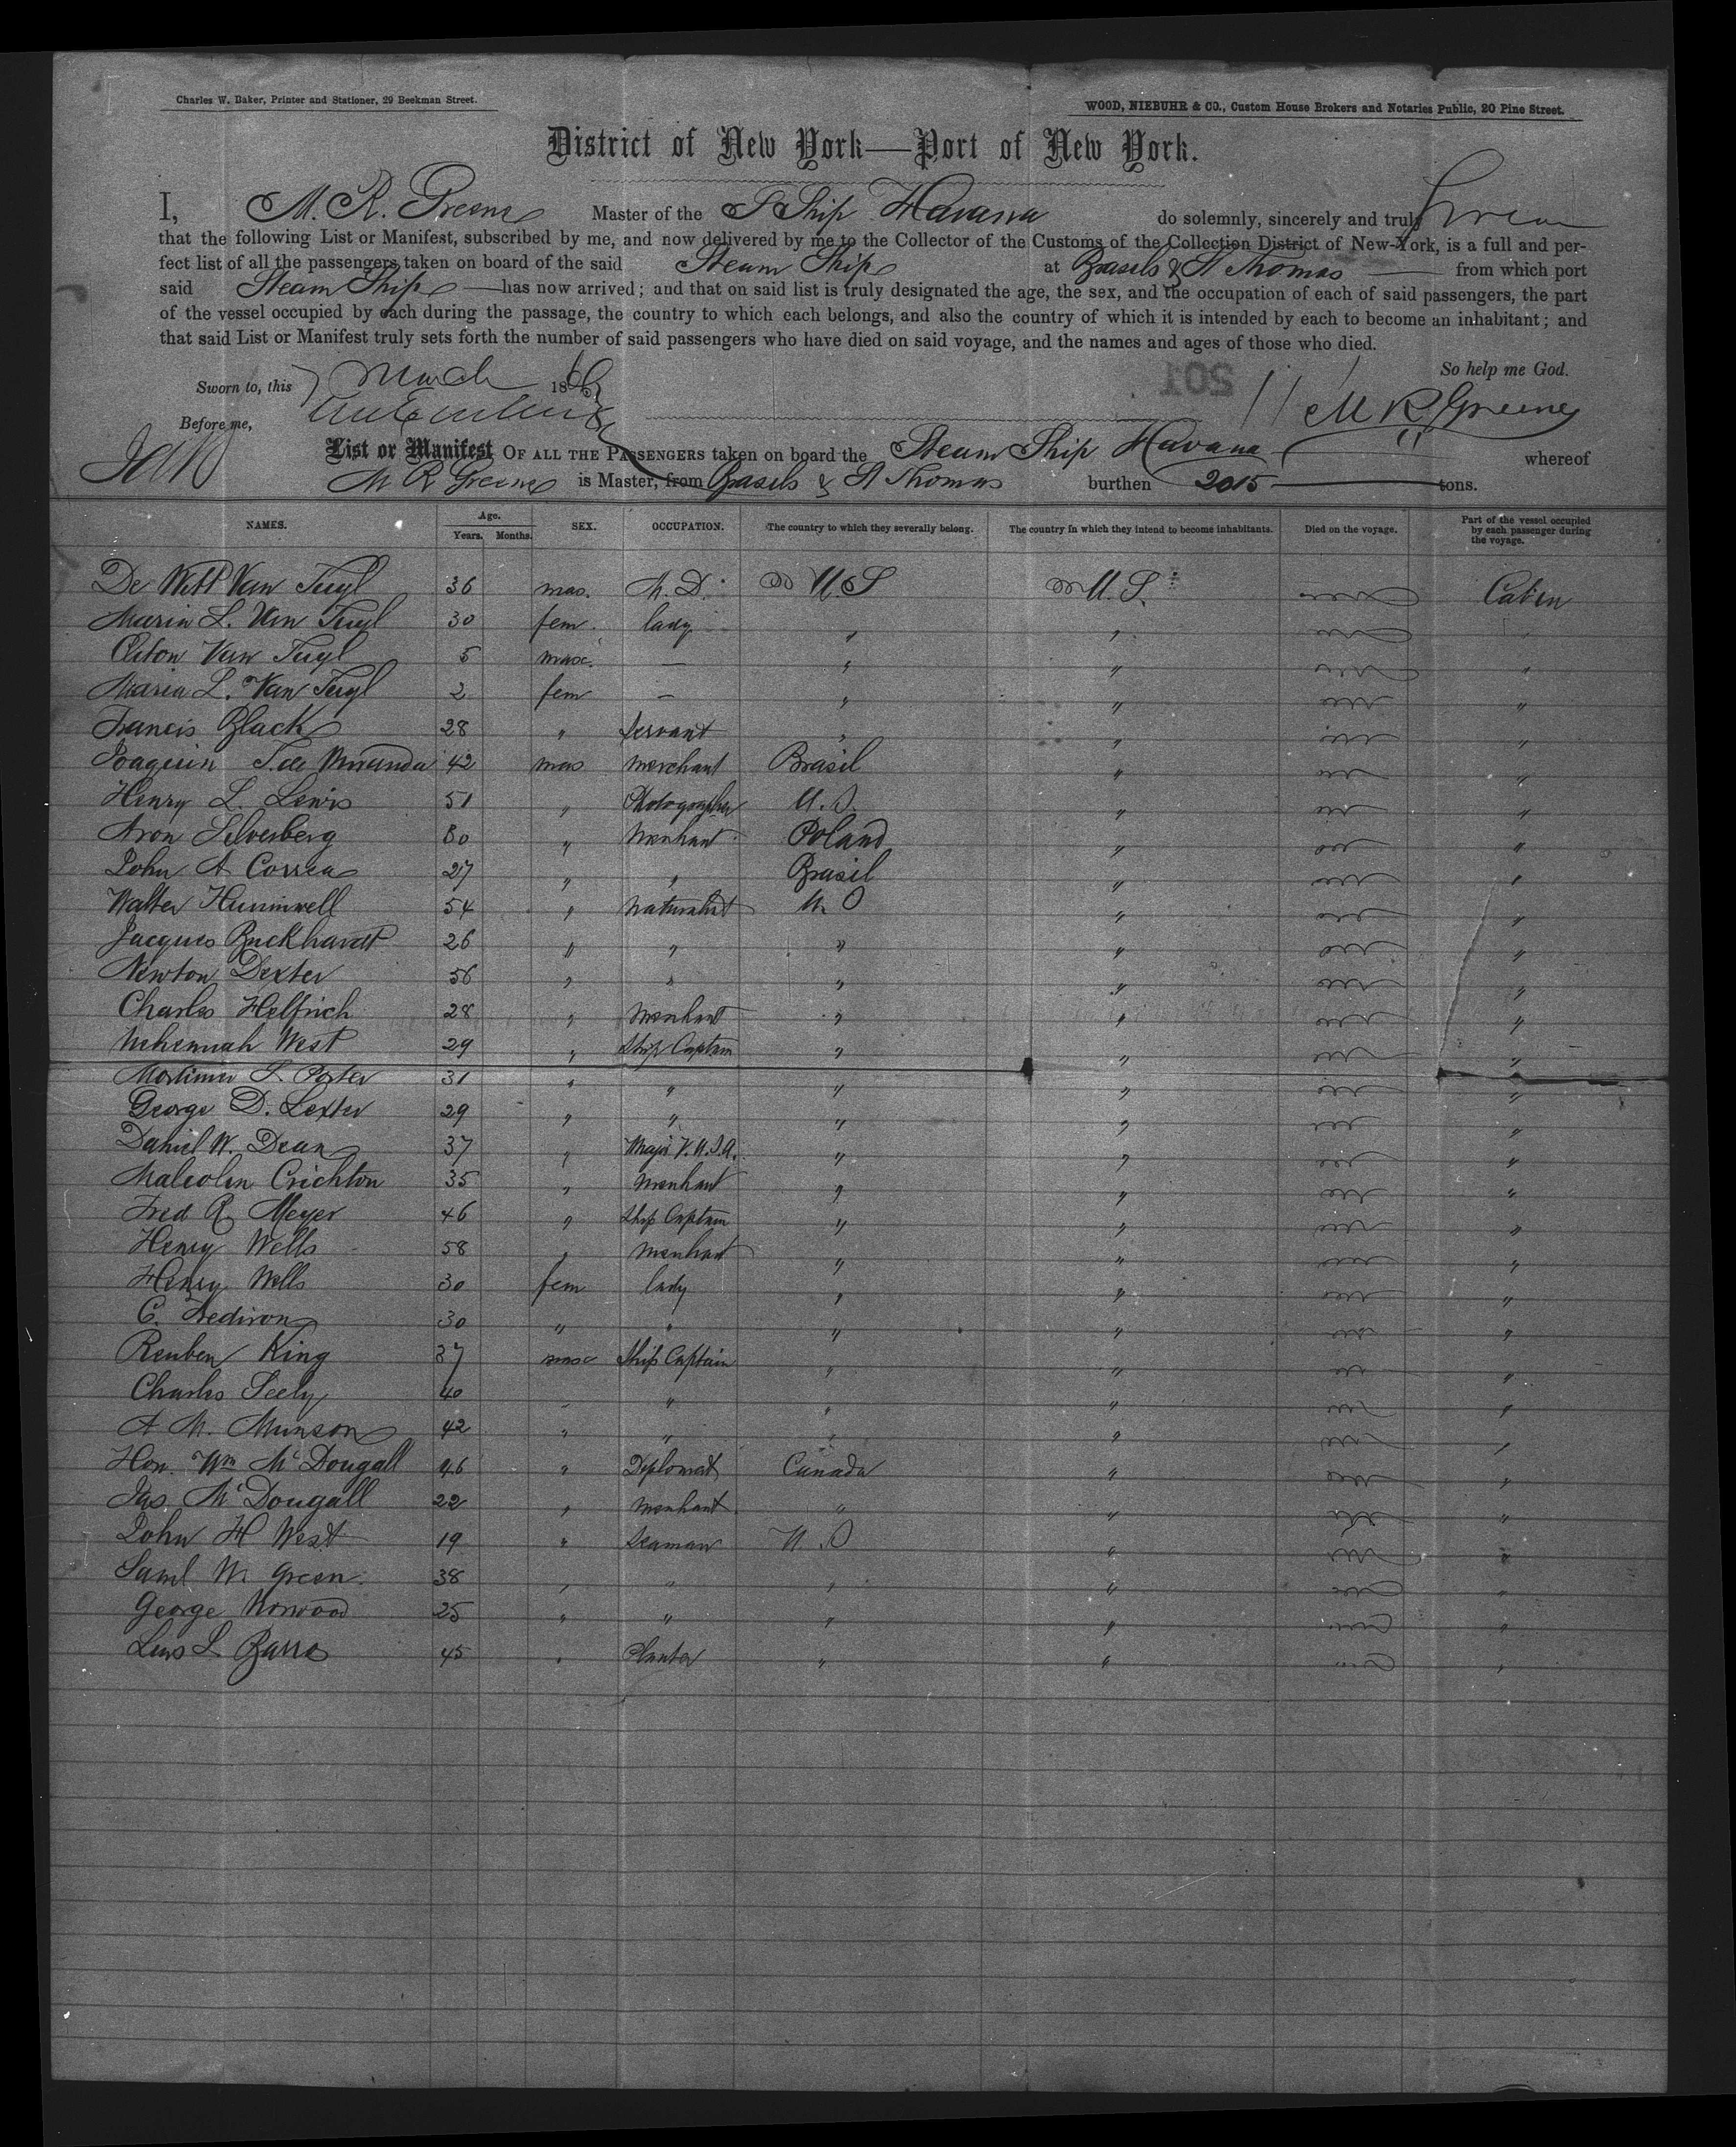 Charles W. Baker, Printer and Stationer, 29 Beekman Street.
WOOD, NIEBUHR & CO., Custom House Brokers and Notaries Public, 20 Pine Street.
District of New York—Port of New York.
I, M. R. Greene Master of the S Ship Havana do solemnly, sincerely and truly swear
that the following List or Manifest, subscribed by me, and now delivered by me to the Collector of the Customs of the Collection District of New-York, is a full and per-
fect list of all the passengers taken on board of the said Steam Ship at Brasils & St Thomas from which port
said Steam Ship has now arrived; and that on said list is truly designated the age, the sex, and the occupation of each of said passengers, the part
of the vessel occupied by each during the passage, the country to which each belongs, and also the country of which it is intended by each to become an inhabitant; and
that said List or Manifest truly sets forth the number of said passengers who have died on said voyage, and the names and ages of those who died.
So help me God.
Sworn to, this 7 March 1866
201
M R Greene
Before me,
List or Manifest OF ALL THE PASSENGERS taken on board the Steam Ship Havana whereof
M R Greene is Master, from Brasils & St Thomas burthen 2015 tons.
NAMES. Age. Years. Months. SEX. OCCUPATION. The country to which they severally belong. The country in which they intend to become inhabitants. Died on the voyage. Part of the vessel occupied by each passenger during the voyage.
De Witt Van Tuyl 36 mas. M. D. U. S U. S. Cabin
Maria L. Van Tuyl 30 fem. lady " " "
Cliton Van Tuyl 5 masc. — " " "
Maria L. Van Tuyl 2 fem — " " "
Francis Black 28 " Servant " " "
Joaquin T. de Miranda 42 mas merchant Brasil " "
Henry L. Lewis 51 " Photographer U. S. " "
Aron Silverberg 30 " Merchant Poland " "
John A Correa 27 " " Brasil " "
Walter Hunnwell 54 " Naturalist U. S " "
Jacques Burkhardt 26 " " " " "
Newton Dexter 56 " " " " "
Charles Helfrich 28 " Merchant " " "
Nehemiah West 29 " Ship Captain " " "
Mortimer S. Porter 31 " " " " "
George D. Lexter 29 " " " " "
Daniel W. Dean 37 " Major V. U. S. A. " " "
Malcolm Crichton 35 " Merchant " " "
Fred R. Meyer 46 " Ship Captain " " "
Henry Wells 58 " Merchant " " "
Henry Wells 30 fem lady " " "
C. 30 " " " " "
Reuben King 37 masc Ship Captain " " "
Charles Seely 40 " " " " "
A M. Munson 42 " " " " "
Hon. Wm McDougall 46 " Diplomat Canada " "
Jas. McDougall 22 " Merchant " " "
John H West 19 " Seaman U. S " "
Saml M Green 38 " " " " "
George Norwood 25 " " " " "
Luis L. Barro 45 " Planter " " "